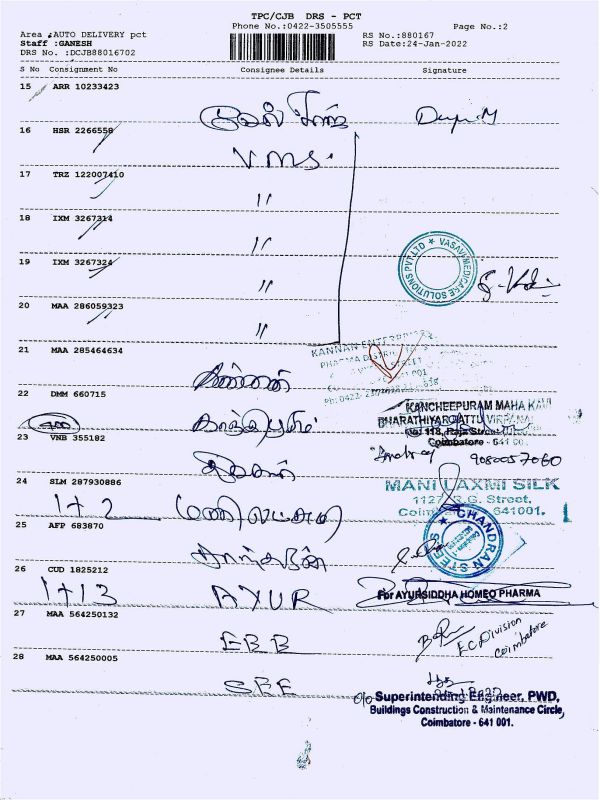 TPC/CJB DRS - PCT
Phone No.:0422-3505555 Page No.:2
Area :AUTO DELIVERY pct RS No.:880167
Staff :GANESH RS Date:24-Jan-2022
DRS No. :DCJB88016702
S No Consignment No Consignee Details Signature
15 ARR 10233423
16 HSR 2266558
VMS.
17 TRZ 122007410
"
18 IXM 3267314
"
19 IXM 3267324
"
VASAVI MEDICARE SOLUTIONS PVT.LTD
20 MAA 286059323
"
21 MAA 285464634
KANNAN
கண்ணன்
22 DMM 660715
KANCHEEPURAM MAHA KAVI
BHARATHIYAR
காஞ்சிபுரம்
No: 118,
Coimbatore - 641 001.
23 VNB 355182
9080057060
24 SLM 287930886
MANI LAXMI SILK
1127 R.G. Street,
1+2 மணி லட்சுமி
641001.
25 AFP 683870
CHANDRAN STEELS
26 CUD 1825212
1+13 AYUR
For AYURSIDDHA HOMEO PHARMA
27 MAA 564250132
EBB
E.C. Division
Coimbatore
28 MAA 564250005
SBE
o/o Superintending Engineer, PWD,
Buildings Construction & Maintenance Circle,
Coimbatore - 641 001.